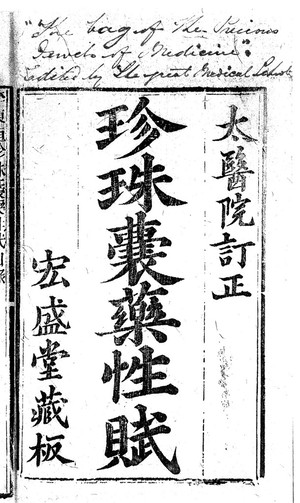 "The bag of The Precious
Jewels of Medicine":
edited by The great Medical School
太醫院訂正
珍珠囊藥性賦
宏盛堂藏板